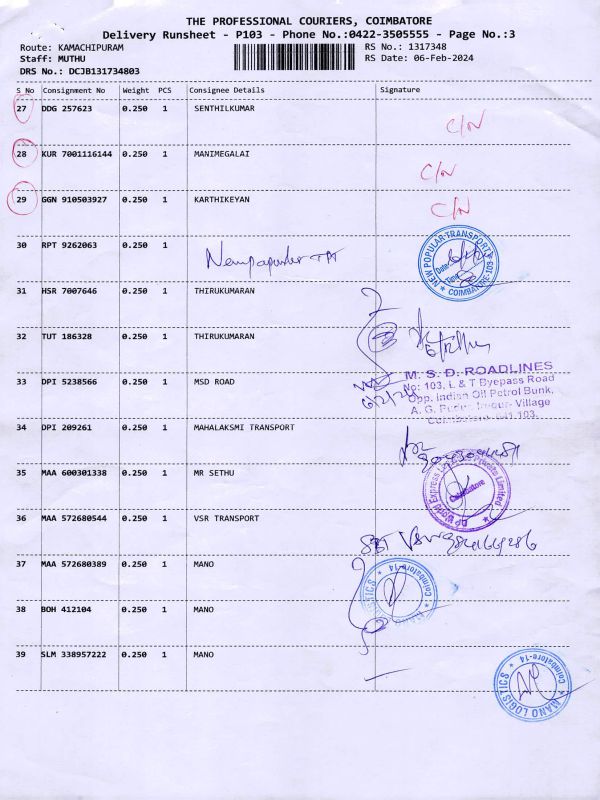 THE PROFESSIONAL COURIERS, COIMBATORE
Delivery Runsheet - P103 - Phone No.:0422-3505555 - Page No.:3
Route: KAMACHIPURAM RS No.: 1317348
Staff: MUTHU RS Date: 06-Feb-2024
DRS No.: DCJB131734803
S No Consignment No Weight PCS Consignee Details Signature
27 DDG 257623 0.250 1 SENTHILKUMAR
C/N
28 KUR 7001116144 0.250 1 MANIMEGALAI
C/N
29 GGN 910503927 0.250 1 KARTHIKEYAN
C/N
30 RPT 9262063 0.250 1
NEW POPULAR TRANSPORT
Date
Time
COIMBATORE-103
31 HSR 7007646 0.250 1 THIRUKUMARAN
32 TUT 186328 0.250 1 THIRUKUMARAN
33 DPI 5238566 0.250 1 MSD ROAD
M. S. D. ROADLINES
No: 103, L & T Byepass Road
Opp. Indian Oil Petrol Bunk,
A. G. Pudur, Irugur- Village
Coimbatore- 641 103.
34 DPI 209261 0.250 1 MAHALAKSMI TRANSPORT
35 MAA 600301338 0.250 1 MR SETHU
Private Limited
Coimbatore
36 MAA 572680544 0.250 1 VSR TRANSPORT
37 MAA 572680389 0.250 1 MANO
MANO LOGISTICS
Coimbatore-14
38 BOH 412104 0.250 1 MANO
39 SLM 338957222 0.250 1 MANO
Coimbatore-14
MANO LOGISTICS